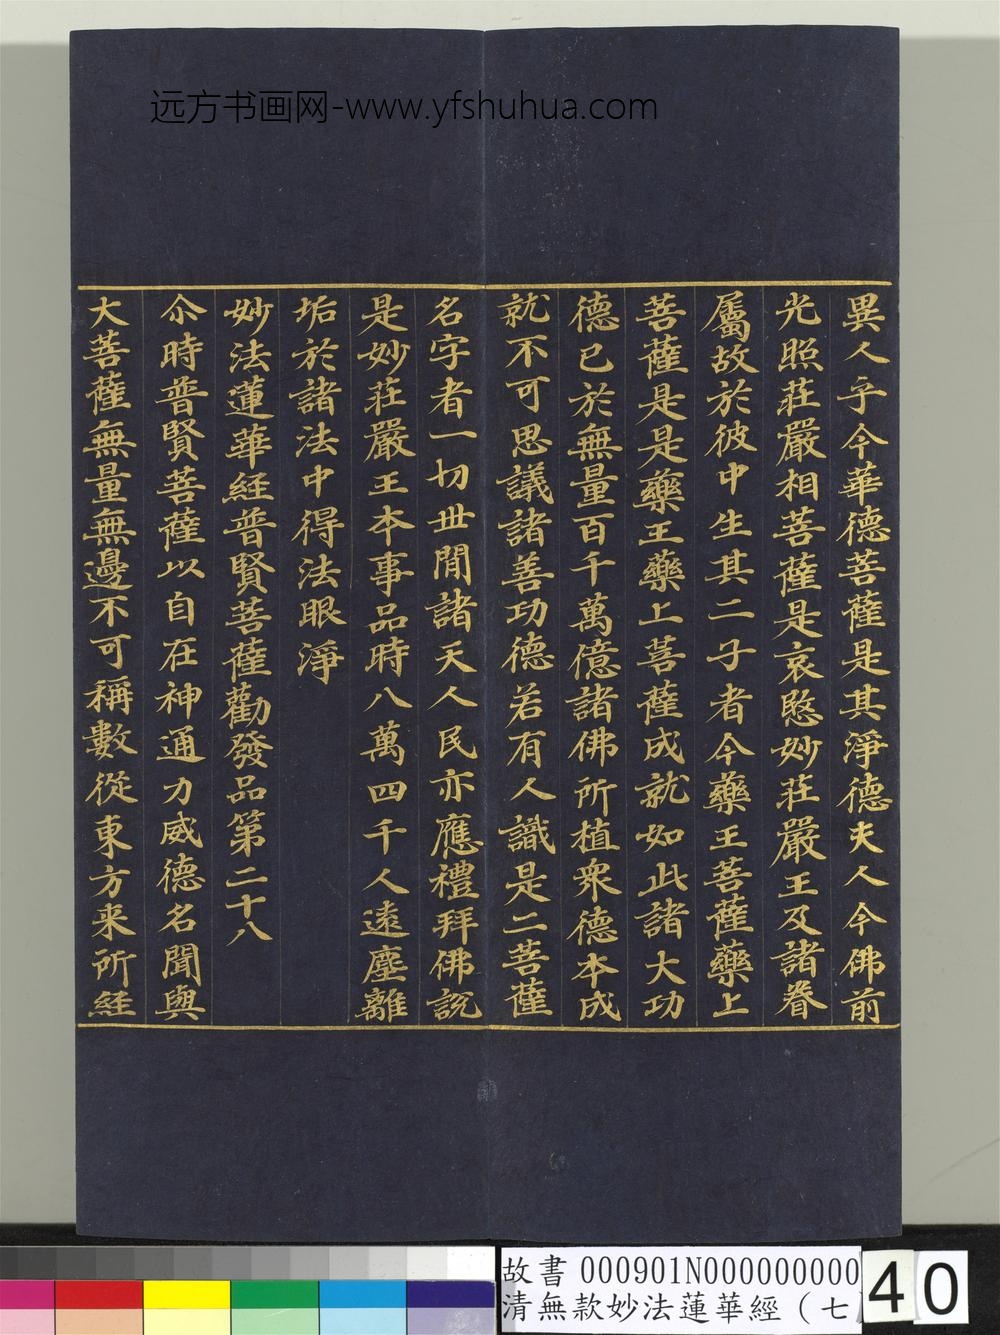 远方书画网-www.yfshuhua.com
異人乎今華德菩薩是其淨德夫人今佛前
光照莊嚴相菩薩是哀愍妙莊嚴王及諸眷
屬故於彼中生其二子者今藥王菩薩藥上
菩薩是是藥王藥上菩薩成就如此諸大功
德已於無量百千萬億諸佛所植衆德本成
就不可思議諸善功德若有人識是二菩薩
名字者一切世間諸天人民亦應禮拜佛說
是妙莊嚴王本事品時八萬四千人遠塵離
垢於諸法中得法眼淨
妙法蓮華經普賢菩薩勸發品第二十八
尒時普賢菩薩以自在神通力威德名聞與
大菩薩無量無邊不可稱數從東方来所經
故書 000901N000000000
清無款妙法蓮華經（七
40